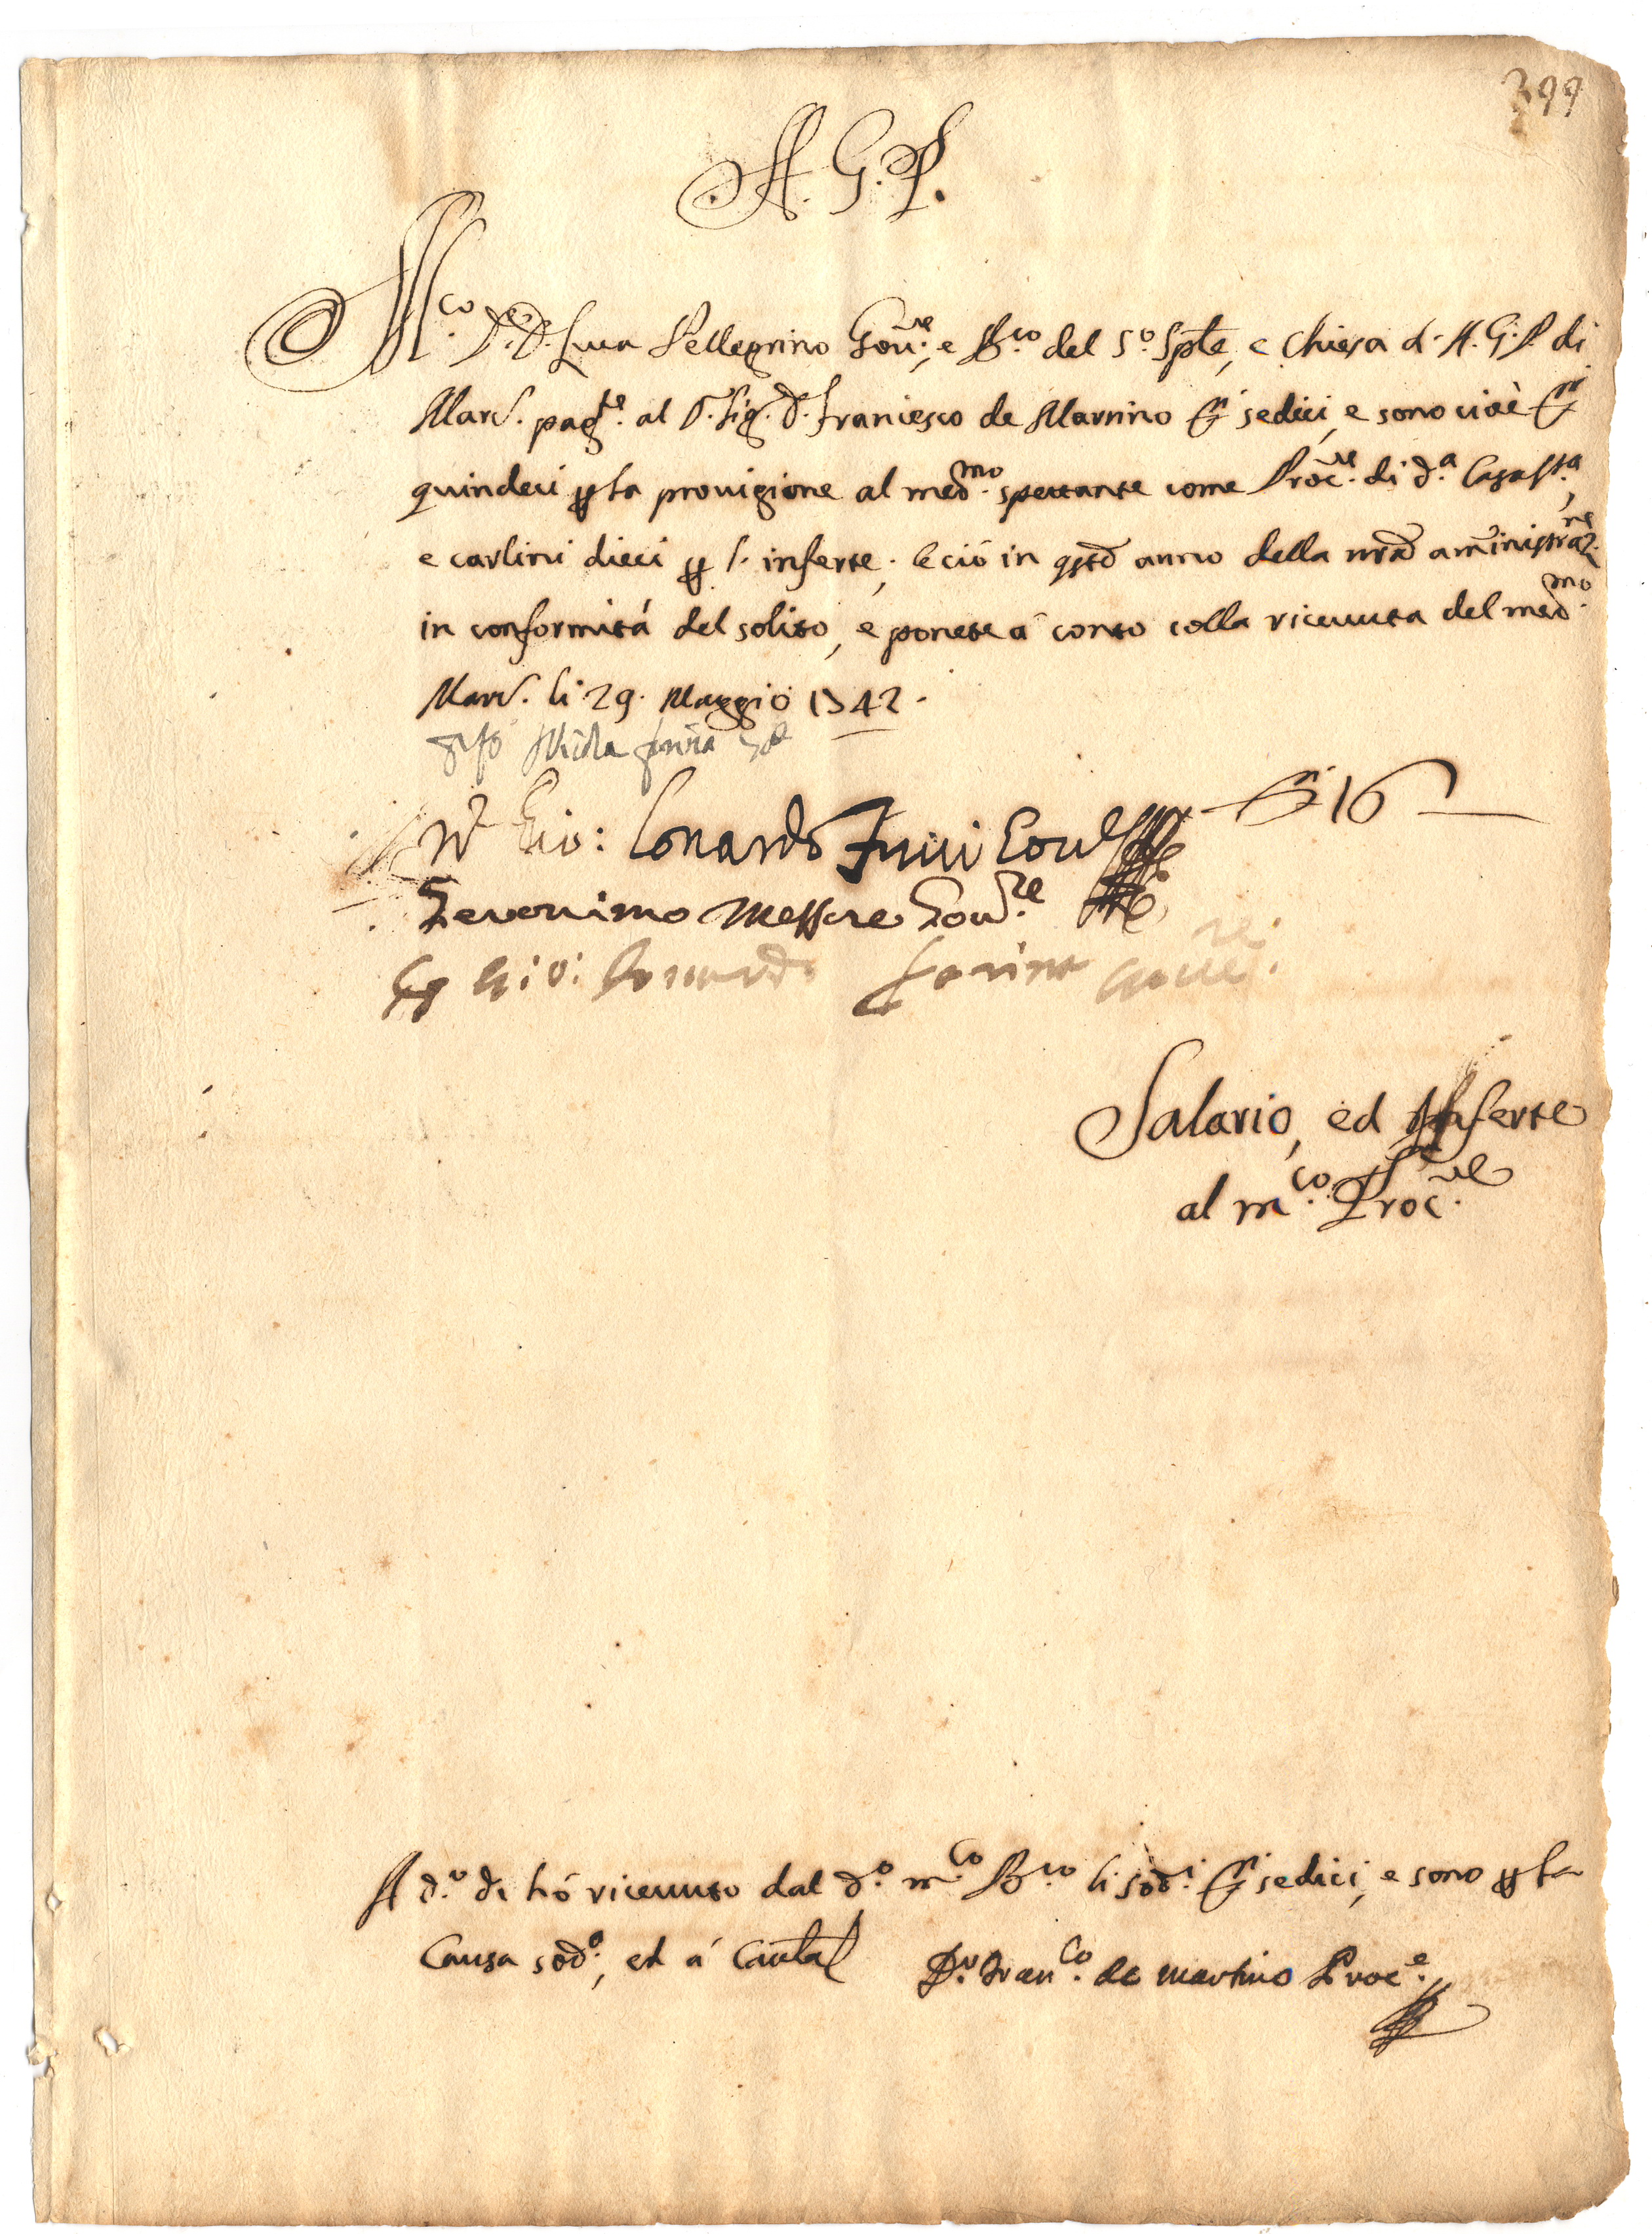 399
A. G. P.
M.co D.r D. Luca Pellegrino Gov.re, e B.ro del S.o Sple, e Chiesa d. A. G. P. di
Marc. pag.te al D. Sig. D. Francesco de Martino sedici, e sono cioè
quindeci p la provigione al med.mo spettante come Proc.re di d.a Casa S.ta,
e carlini dieci p l. inferte. E ciò in qsto anno della nra am̃inistraz.ne
in conformitá del solito, e ponete á conto colla ricevuta del med.mo
Marc. li 29. Maggio 1742.
16
N.r Gio: Lonardo Gov.re
Geronimo Messere Gov.re
Gio: Lonardo Farina Gov.re.
Salario, ed Inferte
al m.co Proc.re
A d.o dì hò ricevuto dal d.o m.co B.ro li sod.i sedici, e sono p la
Causa sod.a, ed á Cautal
D.r Fran.co de Martino Proc.e